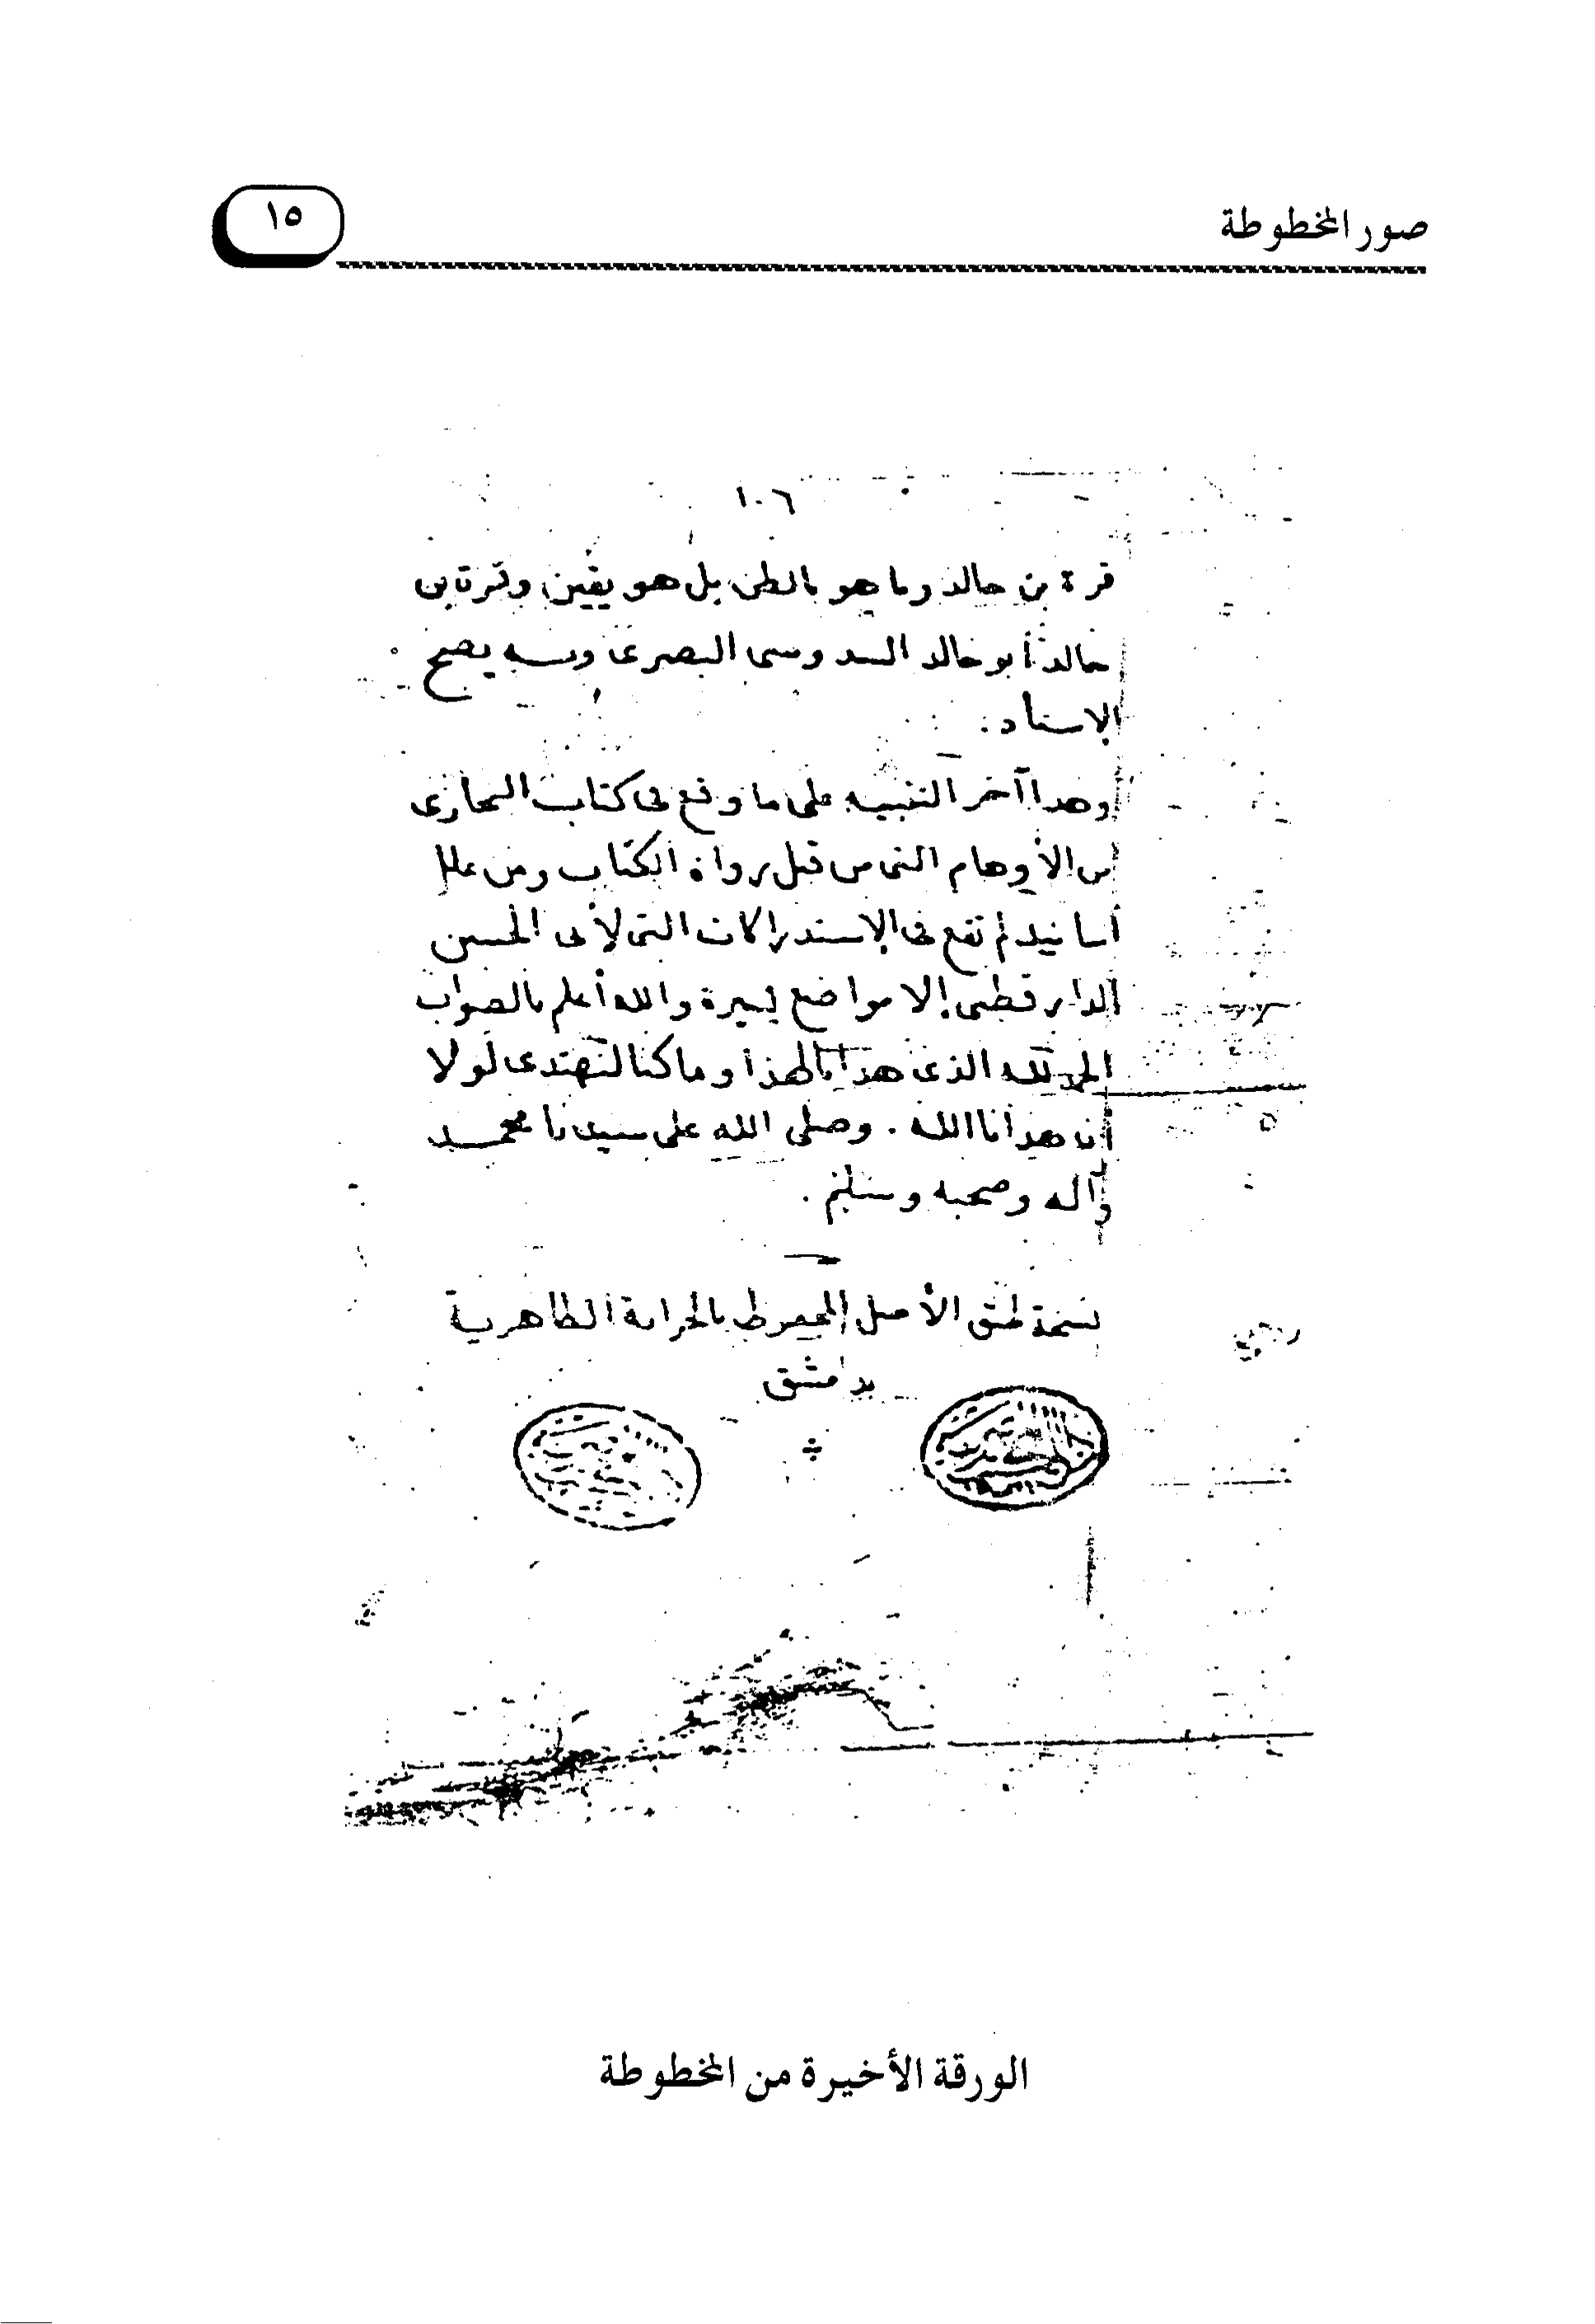 صور المخطوطة
١٥
١٠٦
قرة بن خالد وما هو بالظن بل هو يقين وقرة بن
خالد أبو خالد السدوسى البصرى وبه يصح
الإسناد .
وهذا آخر التنبيه على ما وقع فى كتاب البخارى
من الأوهام التى من قبل رواة الكتاب ومن علل
أسانيد لم تقع فى الإستدراكات التى لأبى الحسين
الدارقطنى إلا مواضع يسيرة والله أعلم بالصواب
الحمد لله الذى هدانا لهذا وما كنا لنهتدى لولا
أن هدانا الله . وصلى الله على سيدنا محمد
وآله وصحبه وسلم .
نسخة طبق الأصل المحفوظ بالخزانة الظاهرية
بدمشق
الورقة الأخيرة من المخطوطة